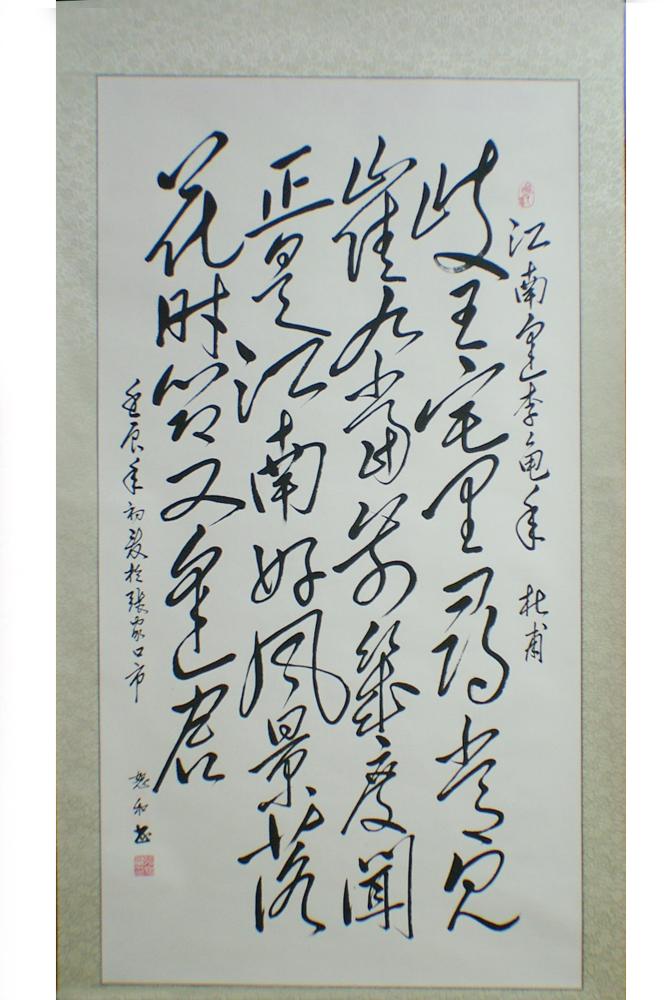 江南逢李龟年 杜甫
歧王宅里尋常见
崔九堂前幾度聞
正是江南好风景落
花时节又逢君
壬辰年初夏於张家口市
和书